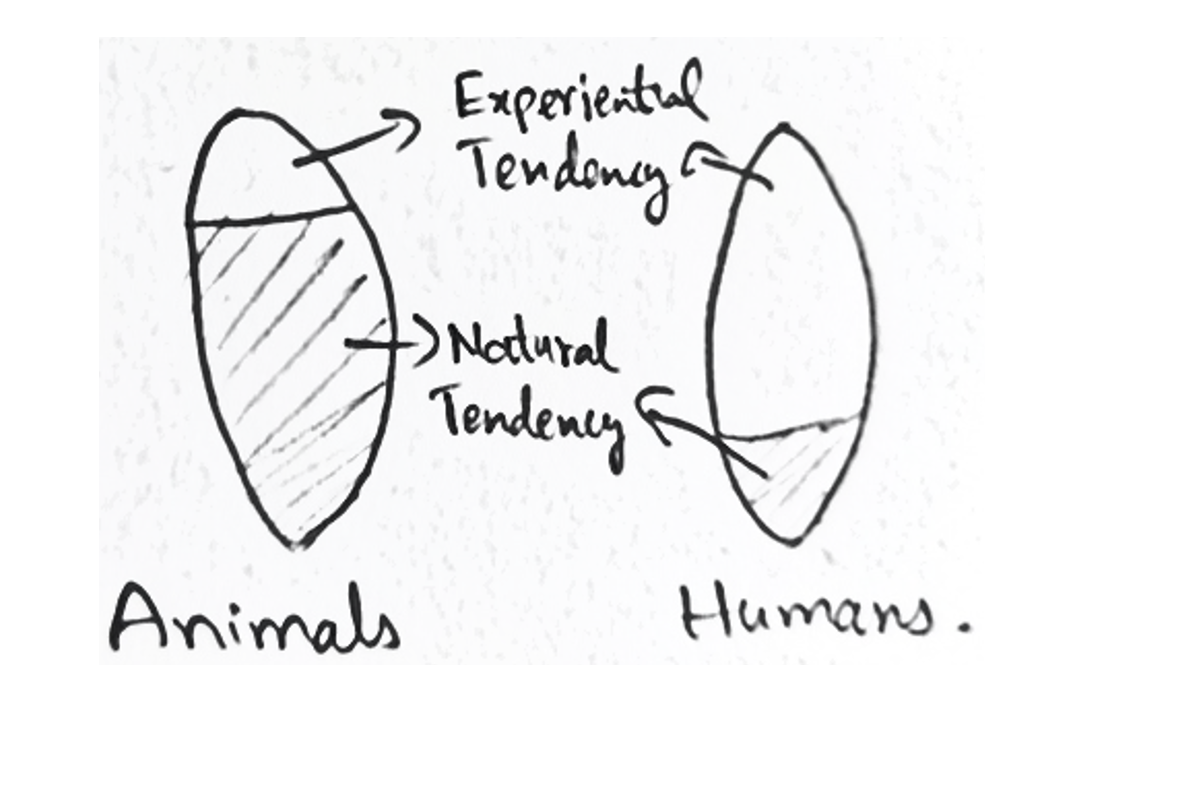 Experiential
Tendency
Natural
Tendency
Animals
Humans.